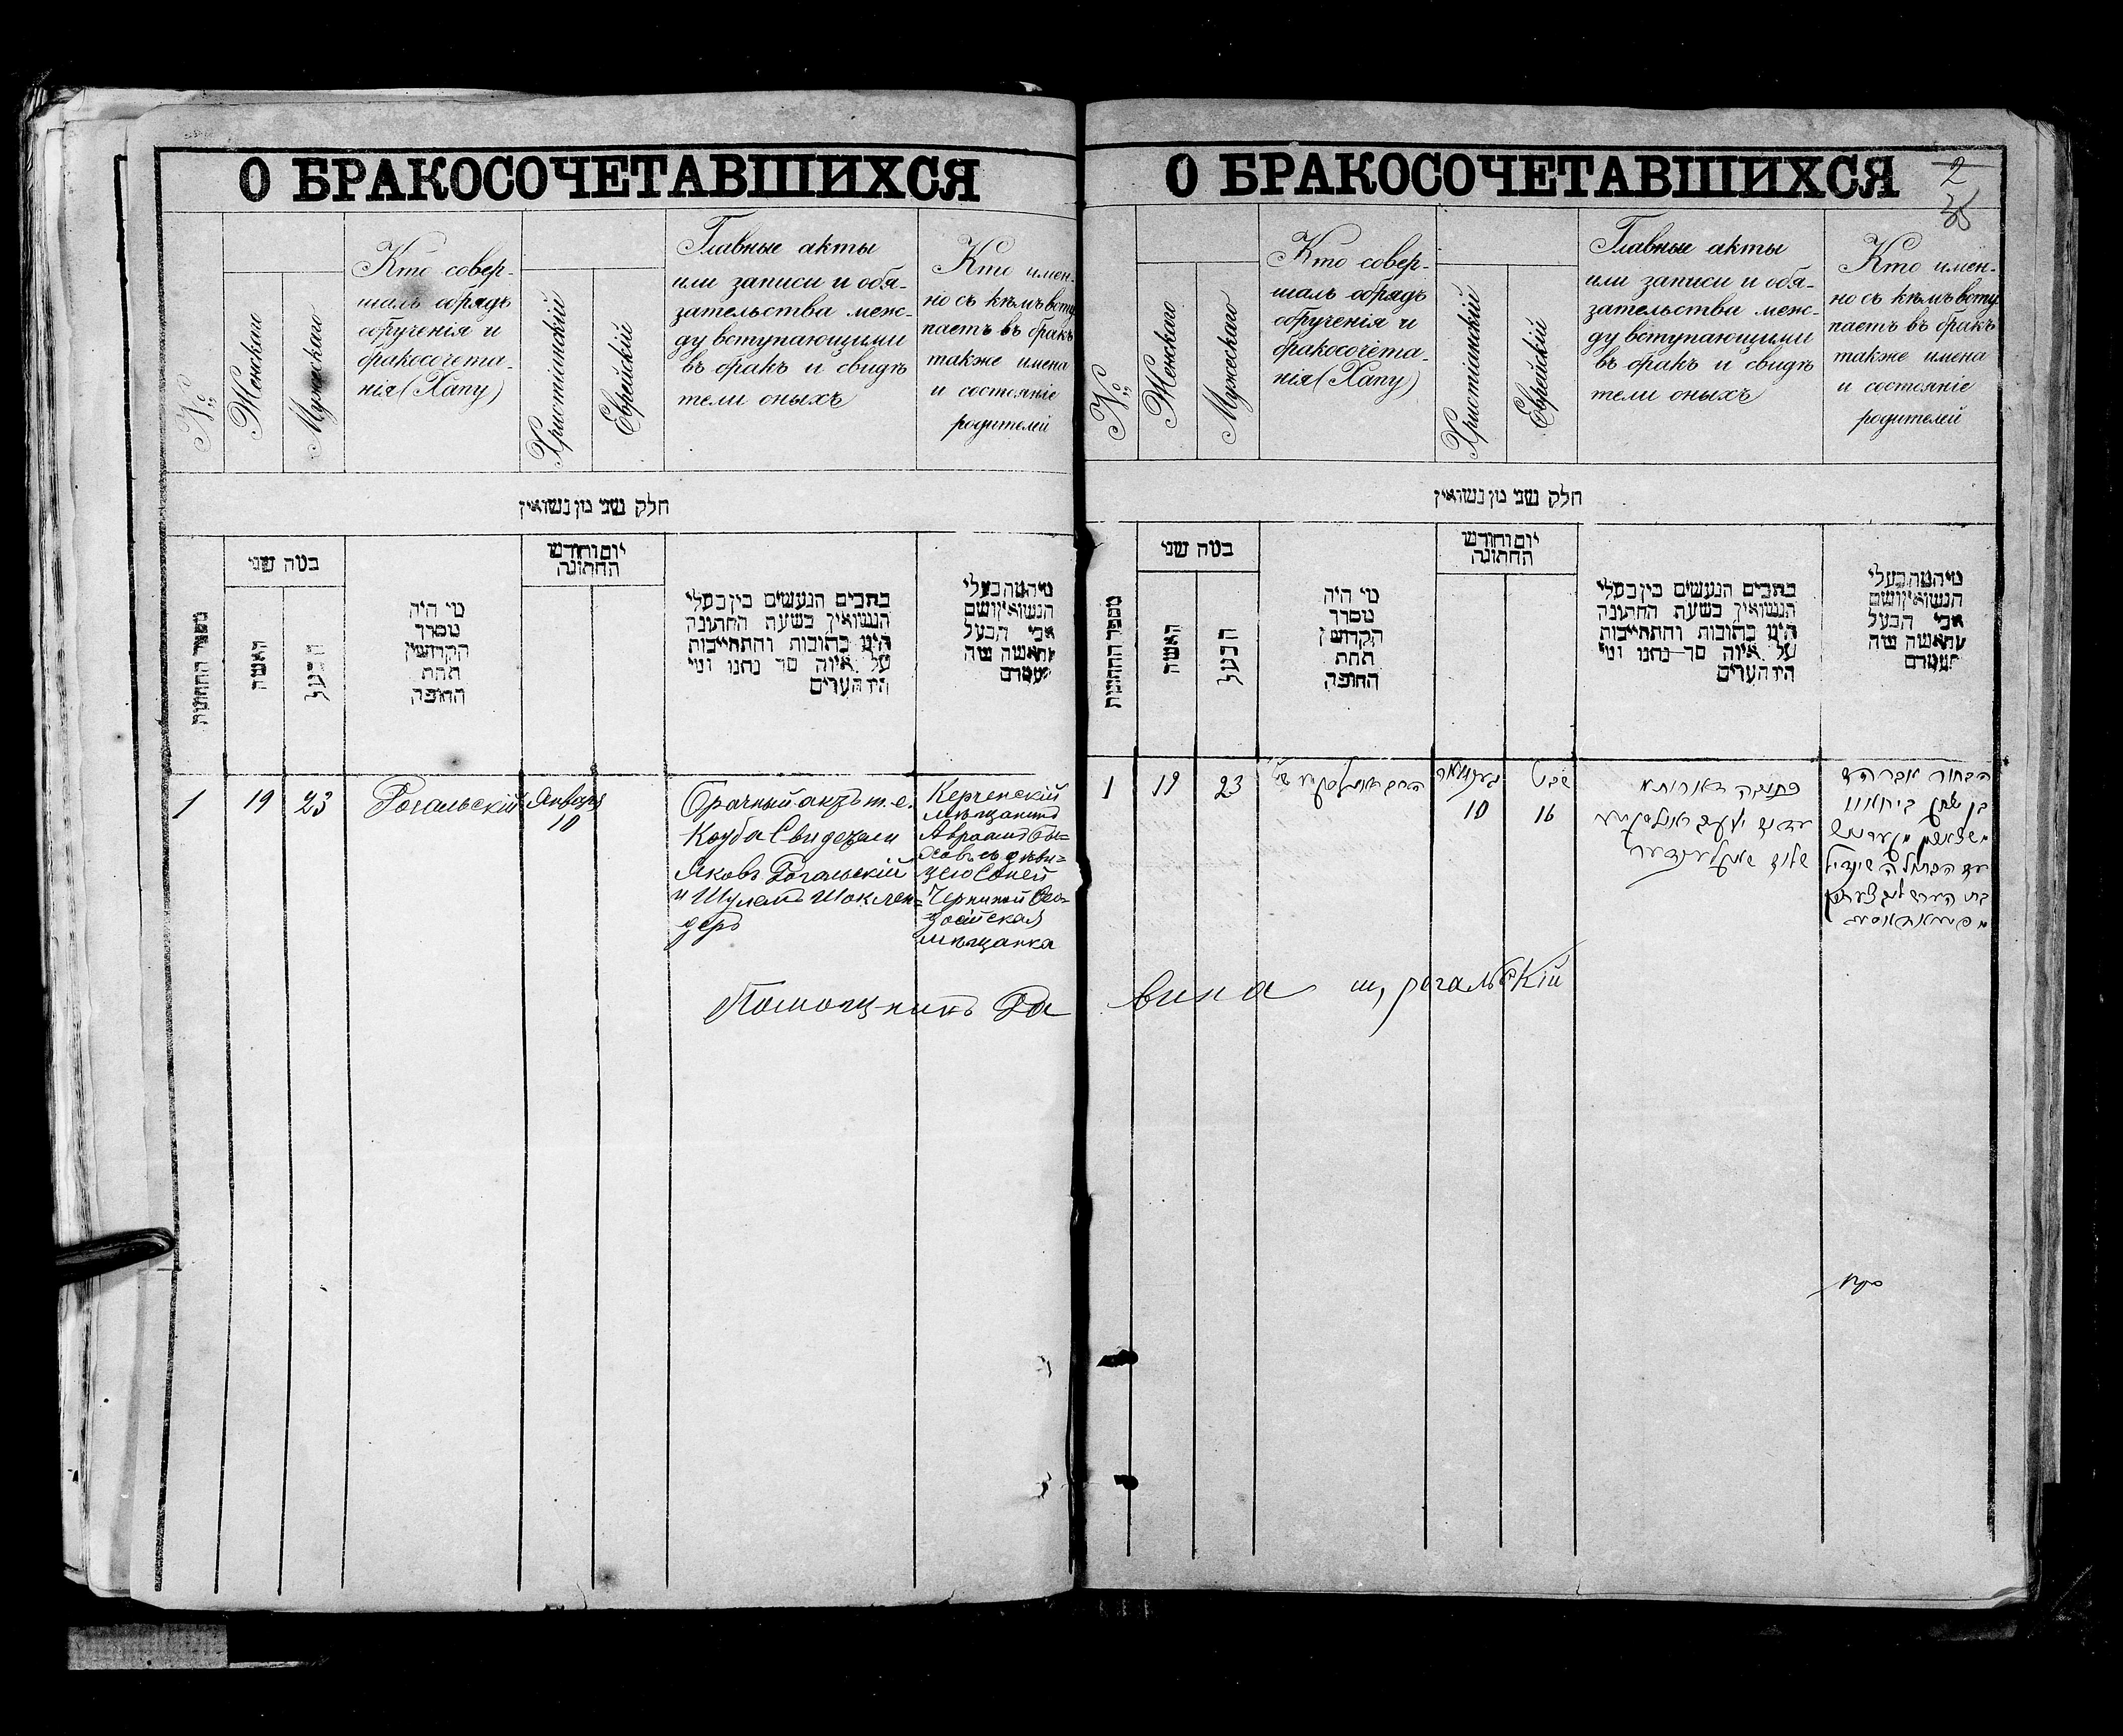 О БРАКОСОЧЕТАВШИХСЯ
№
Женскаго
Мужескаго
Кто совер-
шалъ обрядъ
обрученія и
бракосочета-
нія (Хапу)
Христіанскій
Еврейскій
Главные акты
или записи и обя-
зательства меж-
ду вступающими
въ бракъ и свидѣ
тели оныхъ
Кто имен-
но съ кѣмъ всту
паетъ въ бракъ
также имена
и состояніе
родителей
חלק שני מן נשואין
מספר החתונות
כמה שני
האשה
הבעל
מי היה
מסדר
הקדושין
תחת
החופה
יום וחודש
החתונה
כתבים הנעשים בין בעלי
הנשואין בשעת החתונה
היינו כתובות והתחייבות
על איזה סך נתנו ומי
היו העדים
מי המה בעלי
הנשואין ושם
אבי הבעל
והאשה
1
19
23
Рогальскій
Января
10
Брачный актъ т. е.
Коуба Свидетели
Яковъ Рогальскій
и Шулемъ Шоклен-
деръ
Керченскій
мѣщанинъ
Авраамъ
совъ съ дѣви-
цею Соней
Черниной Ѳео-
досійская
мѣщанка
Помощникъ Ра
О БРАКОСОЧЕТАВШИХСЯ
2
№
Женскаго
Мужескаго
Кто совер-
шалъ обрядъ
обрученія и
бракосочета-
нія (Хапу)
Христіанскій
Еврейскій
Главные акты
или записи и обя-
зательства меж-
ду вступающими
въ бракъ и свидѣ
тели оныхъ
Кто имен-
но съ кѣмъ всту
паетъ въ бракъ
также имена
и состояніе
родителей
חלק שני מן נשואין
מספר החתונות
כמה שני
האשה
הבעל
מי היה
מסדר
הקדושין
תחת
החופה
יום וחודש
החתונה
כתבים הנעשים בין בעלי
הנשואין בשעת החתונה
היינו כתובות והתחייבות
על איזה סך נתנו ומי
היו העדים
מי המה בעלי
הנשואין ושם
אבי הבעל
והאשה
1
19
23
10
שבט
16
הבחור אברהם
בן
בת
вина ш, рогальскій